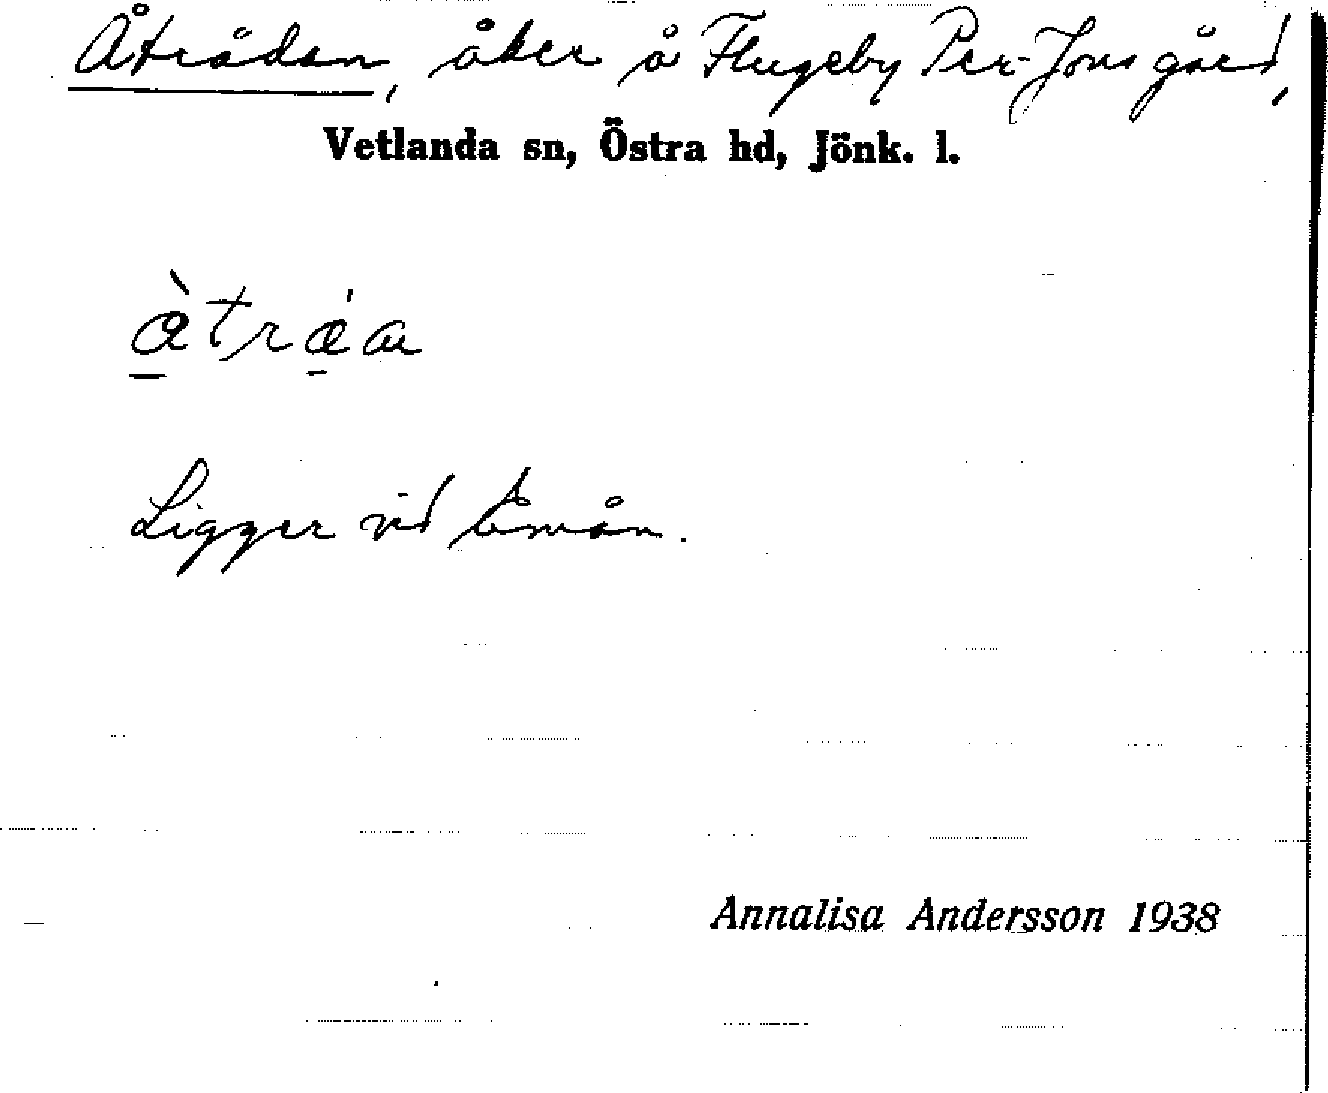 Åträdan, åker å Flugeby Per-Jons gård,
Vetlanda sn, Östra hd, Jönk. l.
Ligger vid Emån.
Annalisa Andersson 1938